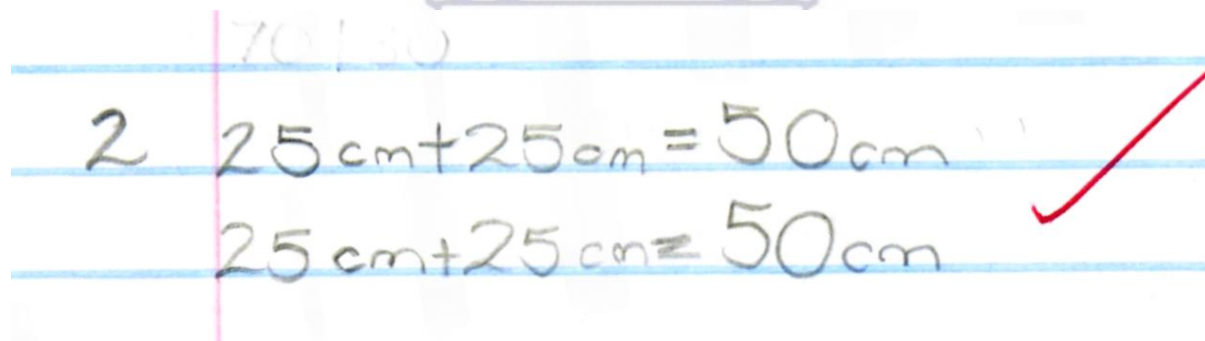 2 25cm+25cm=50cm
25cm+25cm=50cm